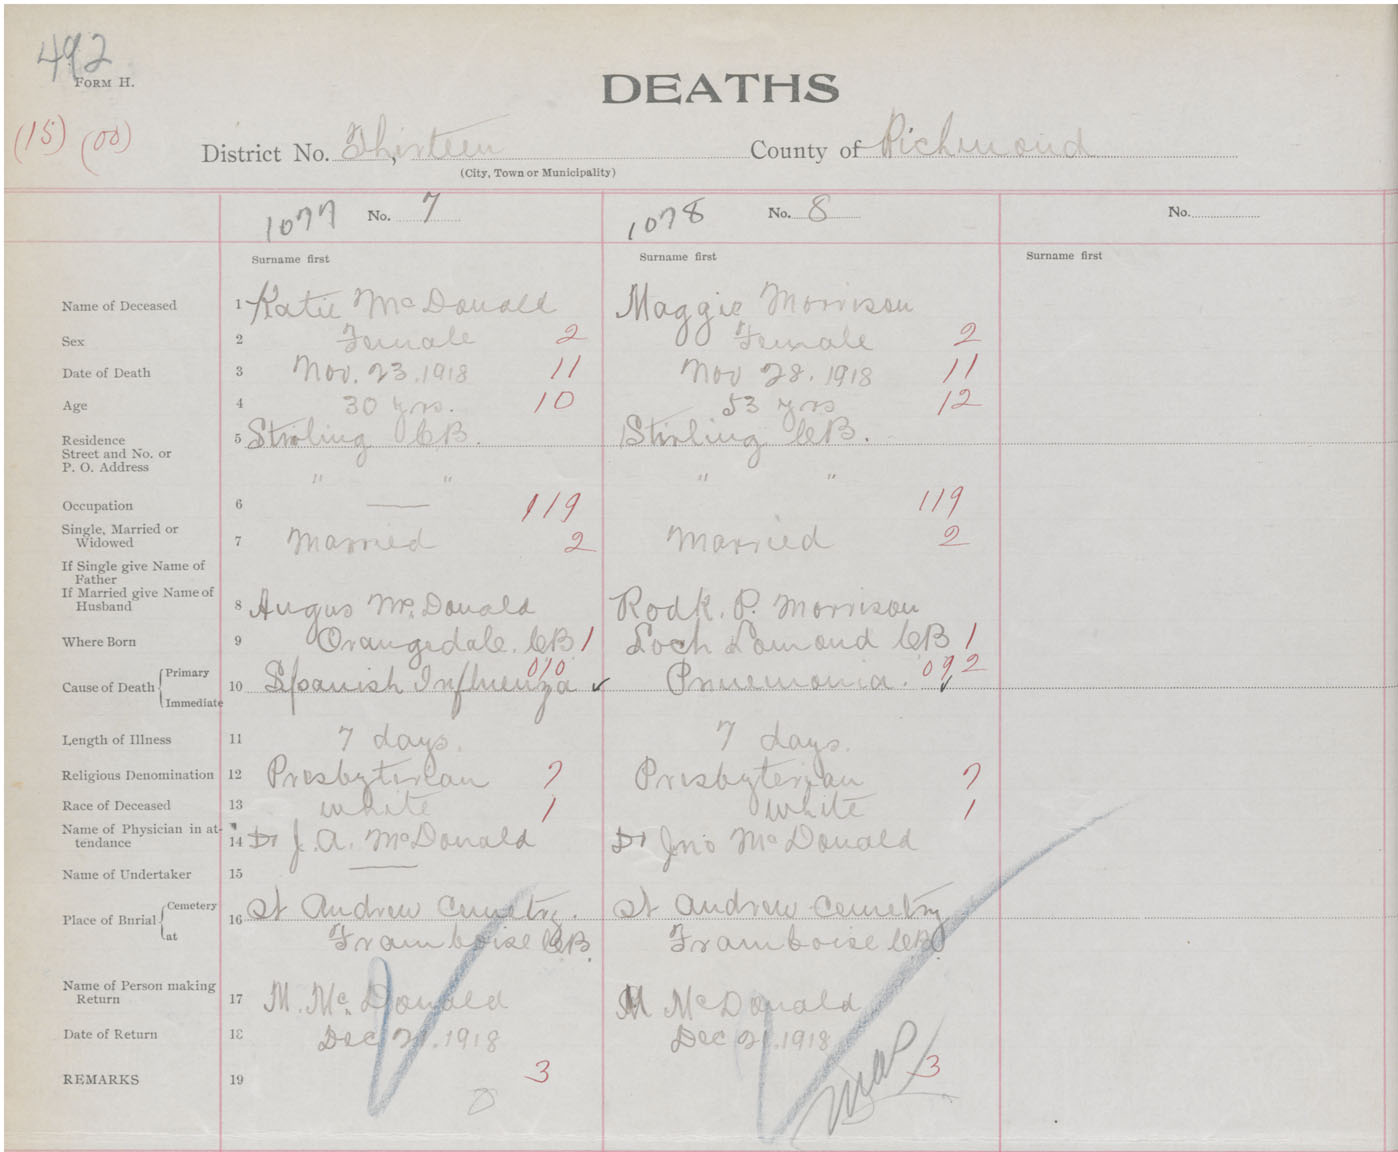 492
FORM H.
DEATHS
(15) (00)
District No. Thirteen, County of Richmond
(City, Town or Municipality)
1077 No. 7 1078 No. 8 No.
Surname first Surname first Surname first
Name of Deceased 1 Katie McDonald Maggie Morrison
Sex 2 Female 2 Female 2
Date of Death 3 Nov. 23. 1918 11 Nov 28. 1918 11
Age 4 30 yrs. 10 53 yrs 12
Residence
Street and No. or
P. O. Address
5 Stirling CB. Stirling CB.
" " " "
Occupation 6 — 119 119
Single, Married or
Widowed
7 Married 2 Married 2
If Single give Name of
Father
If Married give Name of
Husband
8 Angus Mc. Donald Rodk. P. Morrison
Where Born 9 Orangedale. CB 1 Loch Lomond CB 1
010 092
Cause of Death { Primary
Immediate
10 Spanish Influenza ✓ Pnuemonia. ✓
Length of Illness 11 7 days. 7 days.
Religious Denomination 12 Presbyterian 7 Presbyterian 7
Race of Deceased 13 white 1 white 1
Name of Physician in at-
tendance
14 Dr J. A. McDonald Dr Jno McDonald
Name of Undertaker 15 —
Place of Burial { Cemetery
at
16 St Andrew Cemetry. St Andrew Cemetry
Framboise CB. Framboise CB.
Name of Person making
Return
17 M. Mc. Donald M McDonald
Date of Return 18 Dec 21. 1918 Dec 21. 1918
REMARKS 19 3 3